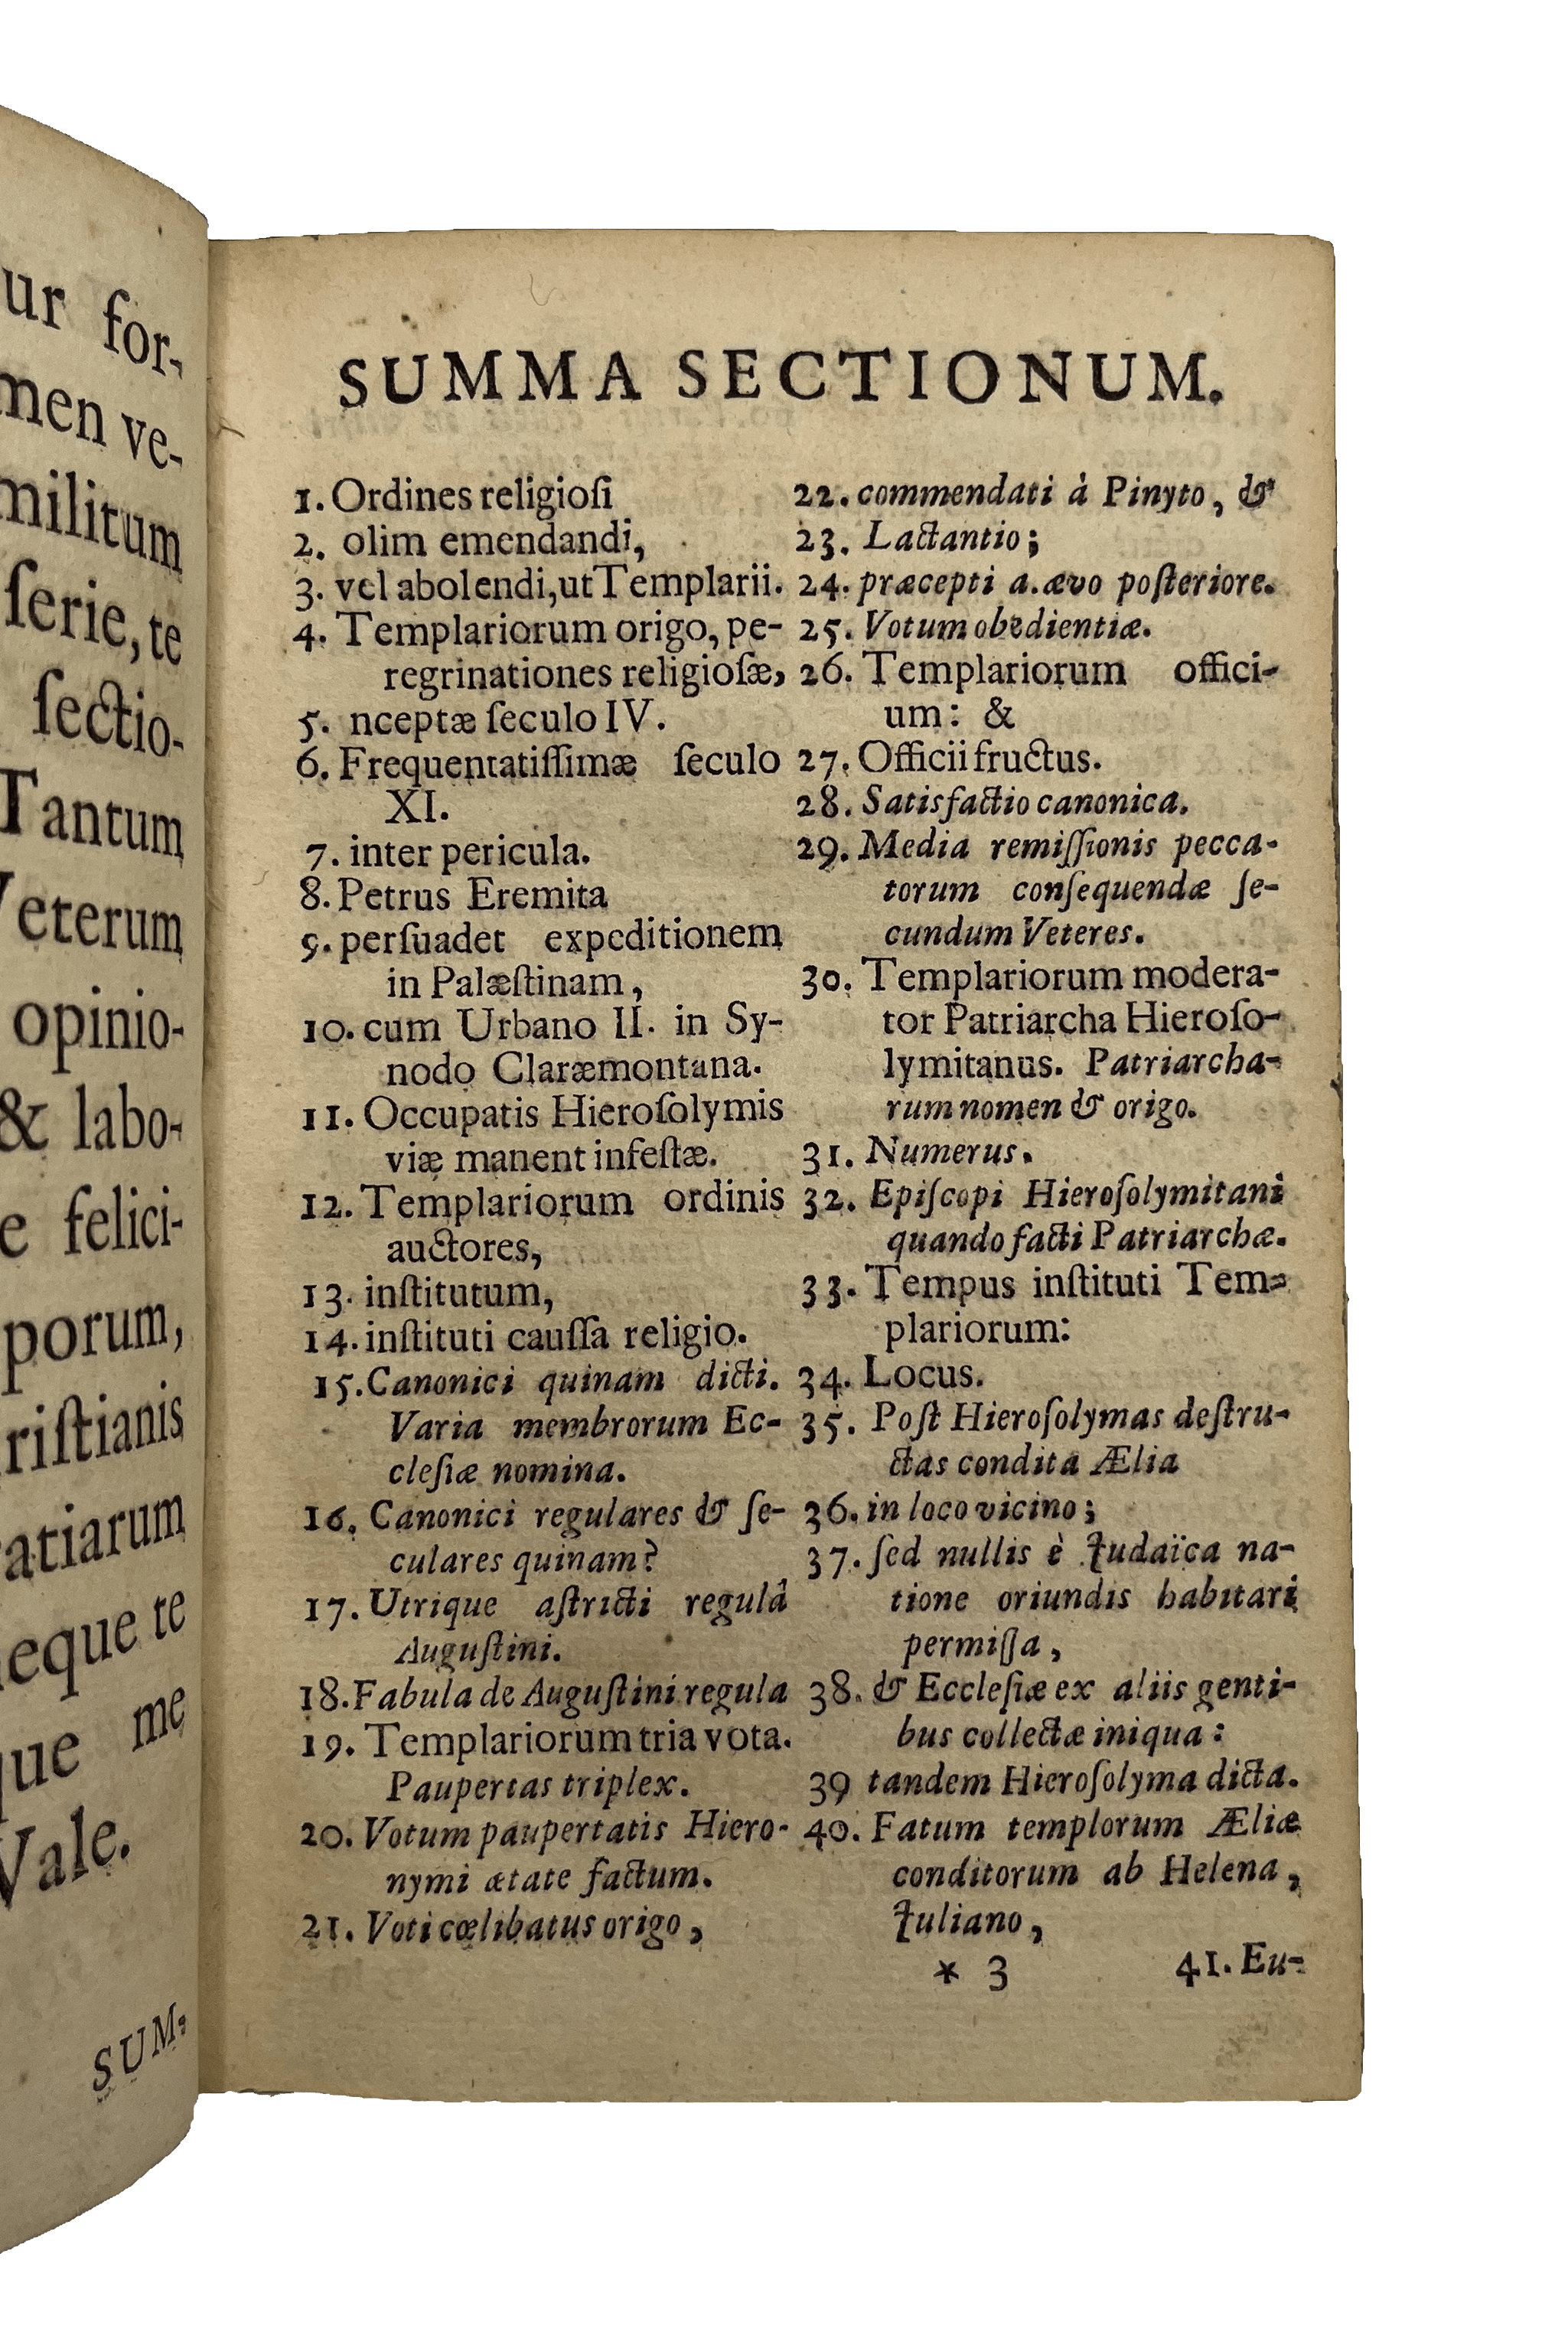 ur for-
men ve-
militum
ſerie, te
ſectio-
Tantum
Veterum
opinio-
& labo-
e felici-
porum,
riſtianis
atiarum
eque te
que me
Vale.
SUM-
SUMMA SECTIONUM.
1. Ordines religioſi
2. olim emendandi,
3. vel abolendi, ut Templarii.
4. Templariorum origo, pe-
regrinationes religioſæ,
5. nceptæ ſeculo IV.
6. Frequentatiſſimæ ſeculo
XI.
7. inter pericula.
8. Petrus Eremita
9. perſuadet expeditionem
in Palæſtinam,
10. cum Urbano II. in Sy-
nodo Claræmontana.
11. Occupatis Hieroſolymis
viæ manent infeſtæ.
12. Templariorum ordinis
auctores,
13. inſtitutum,
14. inſtituti cauſſa religio.
15. Canonici quinam dicti.
Varia membrorum Ec-
cleſiæ nomina.
16. Canonici regulares & ſe-
culares quinam?
17. Utrique aſtricti regulâ
Auguſtini.
18. Fabula de Auguſtini regula
19. Templariorum tria vota.
Paupertas triplex.
20. Votum paupertatis Hiero-
nymi ætate factum.
21. Voti cœlibatus origo,
22. commendati à Pinyto, &
23. Lactantio;
24. præcepti a. ævo poſteriore.
25. Votum obedientiæ.
26. Templariorum offici-
um: &
27. Officii fructus.
28. Satisfactio canonica.
29. Media remiſſionis pecca-
torum conſequendæ ſe-
cundum Veteres.
30. Templariorum modera-
tor Patriarcha Hieroſo-
lymitanus. Patriarcha-
rum nomen & origo.
31. Numerus.
32. Epiſcopi Hieroſolymitani
quando facti Patriarchæ.
33. Tempus inſtituti Tem-
plariorum:
34. Locus.
35. Poſt Hieroſolymas deſtru-
ctas condita Ælia
36. in loco vicino;
37. ſed nullis è Judaïca na-
tione oriundis habitari
permiſſa,
38. & Eccleſiæ ex aliis genti-
bus collectæ iniqua:
39 tandem Hieroſolyma dicta.
40. Fatum templorum Æliæ
conditorum ab Helena,
Juliano,
* 3 41. Eu-